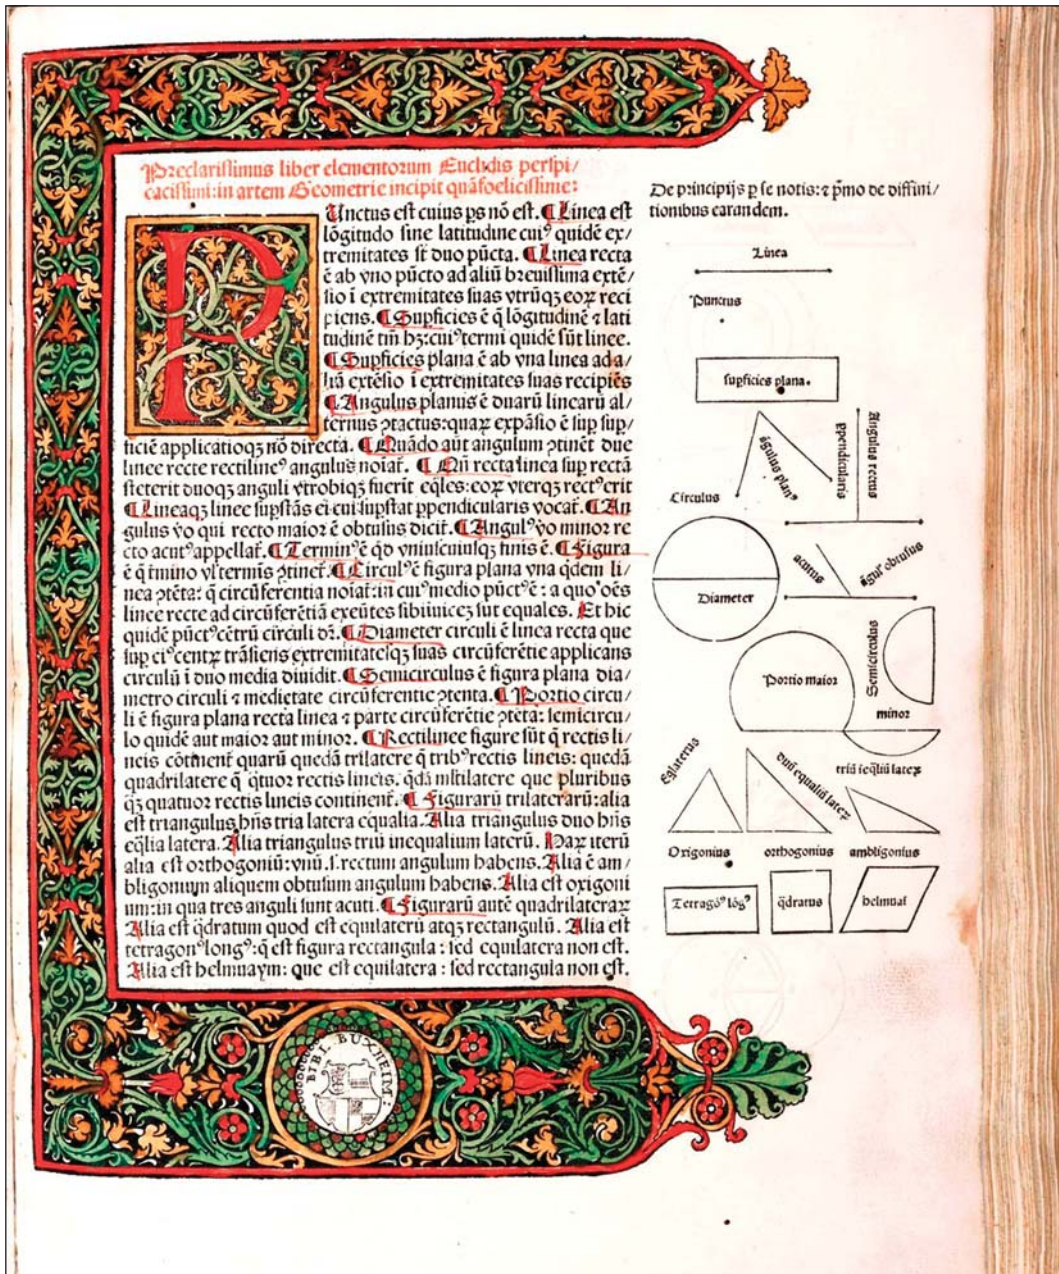 Preclarissimus liber elementorum Euclidis perspi/
cacissimi: in artem Geometrie incipit quãfoelicissime:
PUnctus est cuius ps nõ est. ¶ Linea est
lõgitudo sine latitudine cuiꝰ quidẽ ex/
tremitates st̃ duo pũcta. ¶ Linea recta
ẽ ab vno pũcto ad aliũ breuissima extẽ/
sio ĩ extremitates suas vtrũqꝫ eoꝝ reci
piens. ¶ Supficies ẽ q̃ lõgitudinẽ ⁊ lati
tudinẽ tm̃ hꝫ: cuiꝰ termi quidẽ sũt linee.
¶ Supficies plana ẽ ab vna linea ad a/
liã extẽsio ĩ extremitates suas recipiẽs
¶ Angulus planus ẽ duarũ linearũ al/
ternus ꝯtactus: quaꝝ expãsio ẽ sup sup/
ficiẽ applicatioqꝫ nõ directa. ¶ Quãdo aũt angulum ꝯtinẽt due
linee recte rectilineꝰ angulus noiat̃. ¶ Qñ recta linea sup rectã
steterit duoqꝫ anguli vtrobiqꝫ fuerit eq̃les: eoꝝ vterqꝫ rectꝰ erit
¶ Lineaqꝫ linee supstãs ei cui supstat ppendicularis vocat̃. ¶ An
gulus vo qui recto maior ẽ obtusus dicit̃. ¶ Angulꝰ vo minor re
cto acutꝰ appellat̃. ¶ Terminꝰ ẽ qd̃ vniuscuiusqꝫ finis ẽ. ¶ Figura
ẽ q̃ tmino vl' termis ꝯtinet̃. ¶ Circulꝰ ẽ figura plana vna q̃dem li/
nea ꝯtẽta: q̃ circũferentia noiat̃: in cuiꝰ medio pũctꝰ ẽ: a quo oẽs
linee recte ad circũferẽtiã exeũtes sibiinuicẽ sut equales. Et hic
quidẽ pũctꝰ cẽtrũ circuli dr̃. ¶ Diameter circuli ẽ linea recta que
sup eiꝰ centꝝ trãsiens extremitatesqꝫ suas circũferẽtie applicans
circulũ ĩ duo media diuidit. ¶ Semicirculus ẽ figura plana dia/
metro circuli ⁊ medietate circũferentie ꝯtenta. ¶ Portio circu/
li ẽ figura plana recta linea ⁊ parte circũferẽtie ꝯtẽta: semicircu/
lo quidẽ aut maior aut minor. ¶ Rectilinee figure sũt q̃ rectis li/
neis cõtinent̃ quarũ quedã trilatere q̃ tribꝰ rectis lineis: quedã
quadrilatere q̃ q̃tuor rectis lineis. q̃dã mltilatere que pluribus
q̃ꝫ quatuor rectis lineis continent̃. ¶ Figurarũ trilaterarũ: alia
est triangulus hñs tria latera equalia. Alia triangulus duo hñs
eq̃lia latera. Alia triangulus triũ inequalium laterũ. Haꝝ iterũ
alia est orthogoniũ: vnũ .s. rectum angulum habens. Alia ẽ am/
bligonium aliquem obtusum angulum habens. Alia est oxigoni
um: in qua tres anguli sunt acuti. ¶ Figurarũ autẽ quadrilateraꝝ
Alia est q̃dratum quod est equilaterũ atqꝫ rectangulũ. Alia est
tetragonꝰ longꝰ: q̃ est figura rectangula: sed equilatera non est.
Alia est helmuaym: que est equilatera: sed rectangula non est.
BIBL. BUXHEIM:
De principijs p se notis: ⁊ p̃mo de diffini/
tionibus earandem.
Linea
Punctus
supficies plana.
ãgulus planꝰ
ppendicularis
Angulus rectus
Circulus
Diameter
acutus
ãgulꝰ obtusus
Semicirculus
Portio maior
minor
Eq̃laterus
duũ equaliũ lateꝝ
triũ ieq̃liũ lateꝝ
Oxigonius
orthogonius
ambligonius
Tetragõꝰ lõgꝰ
q̃dratus
helmuaĩ